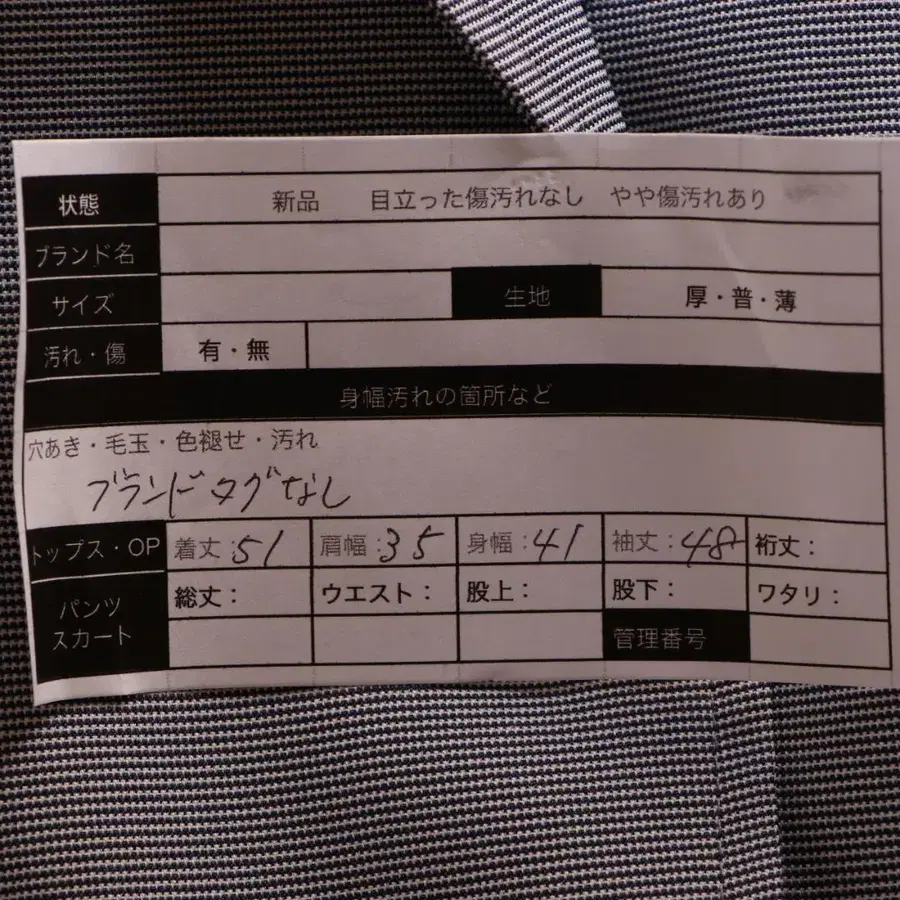 状態 新品 目立った傷汚れなし やや傷汚れあり
ブランド名
サイズ 生地 厚・普・薄
汚れ・傷 有・無
身幅汚れの箇所など
穴あき・毛玉・色褪せ・汚れ
ブランドタグなし
トップス・OP 着丈:51 肩幅:35 身幅:41 袖丈:48 裄丈:
パンツ スカート 総丈: ウエスト: 股上: 股下: ワタリ:
管理番号